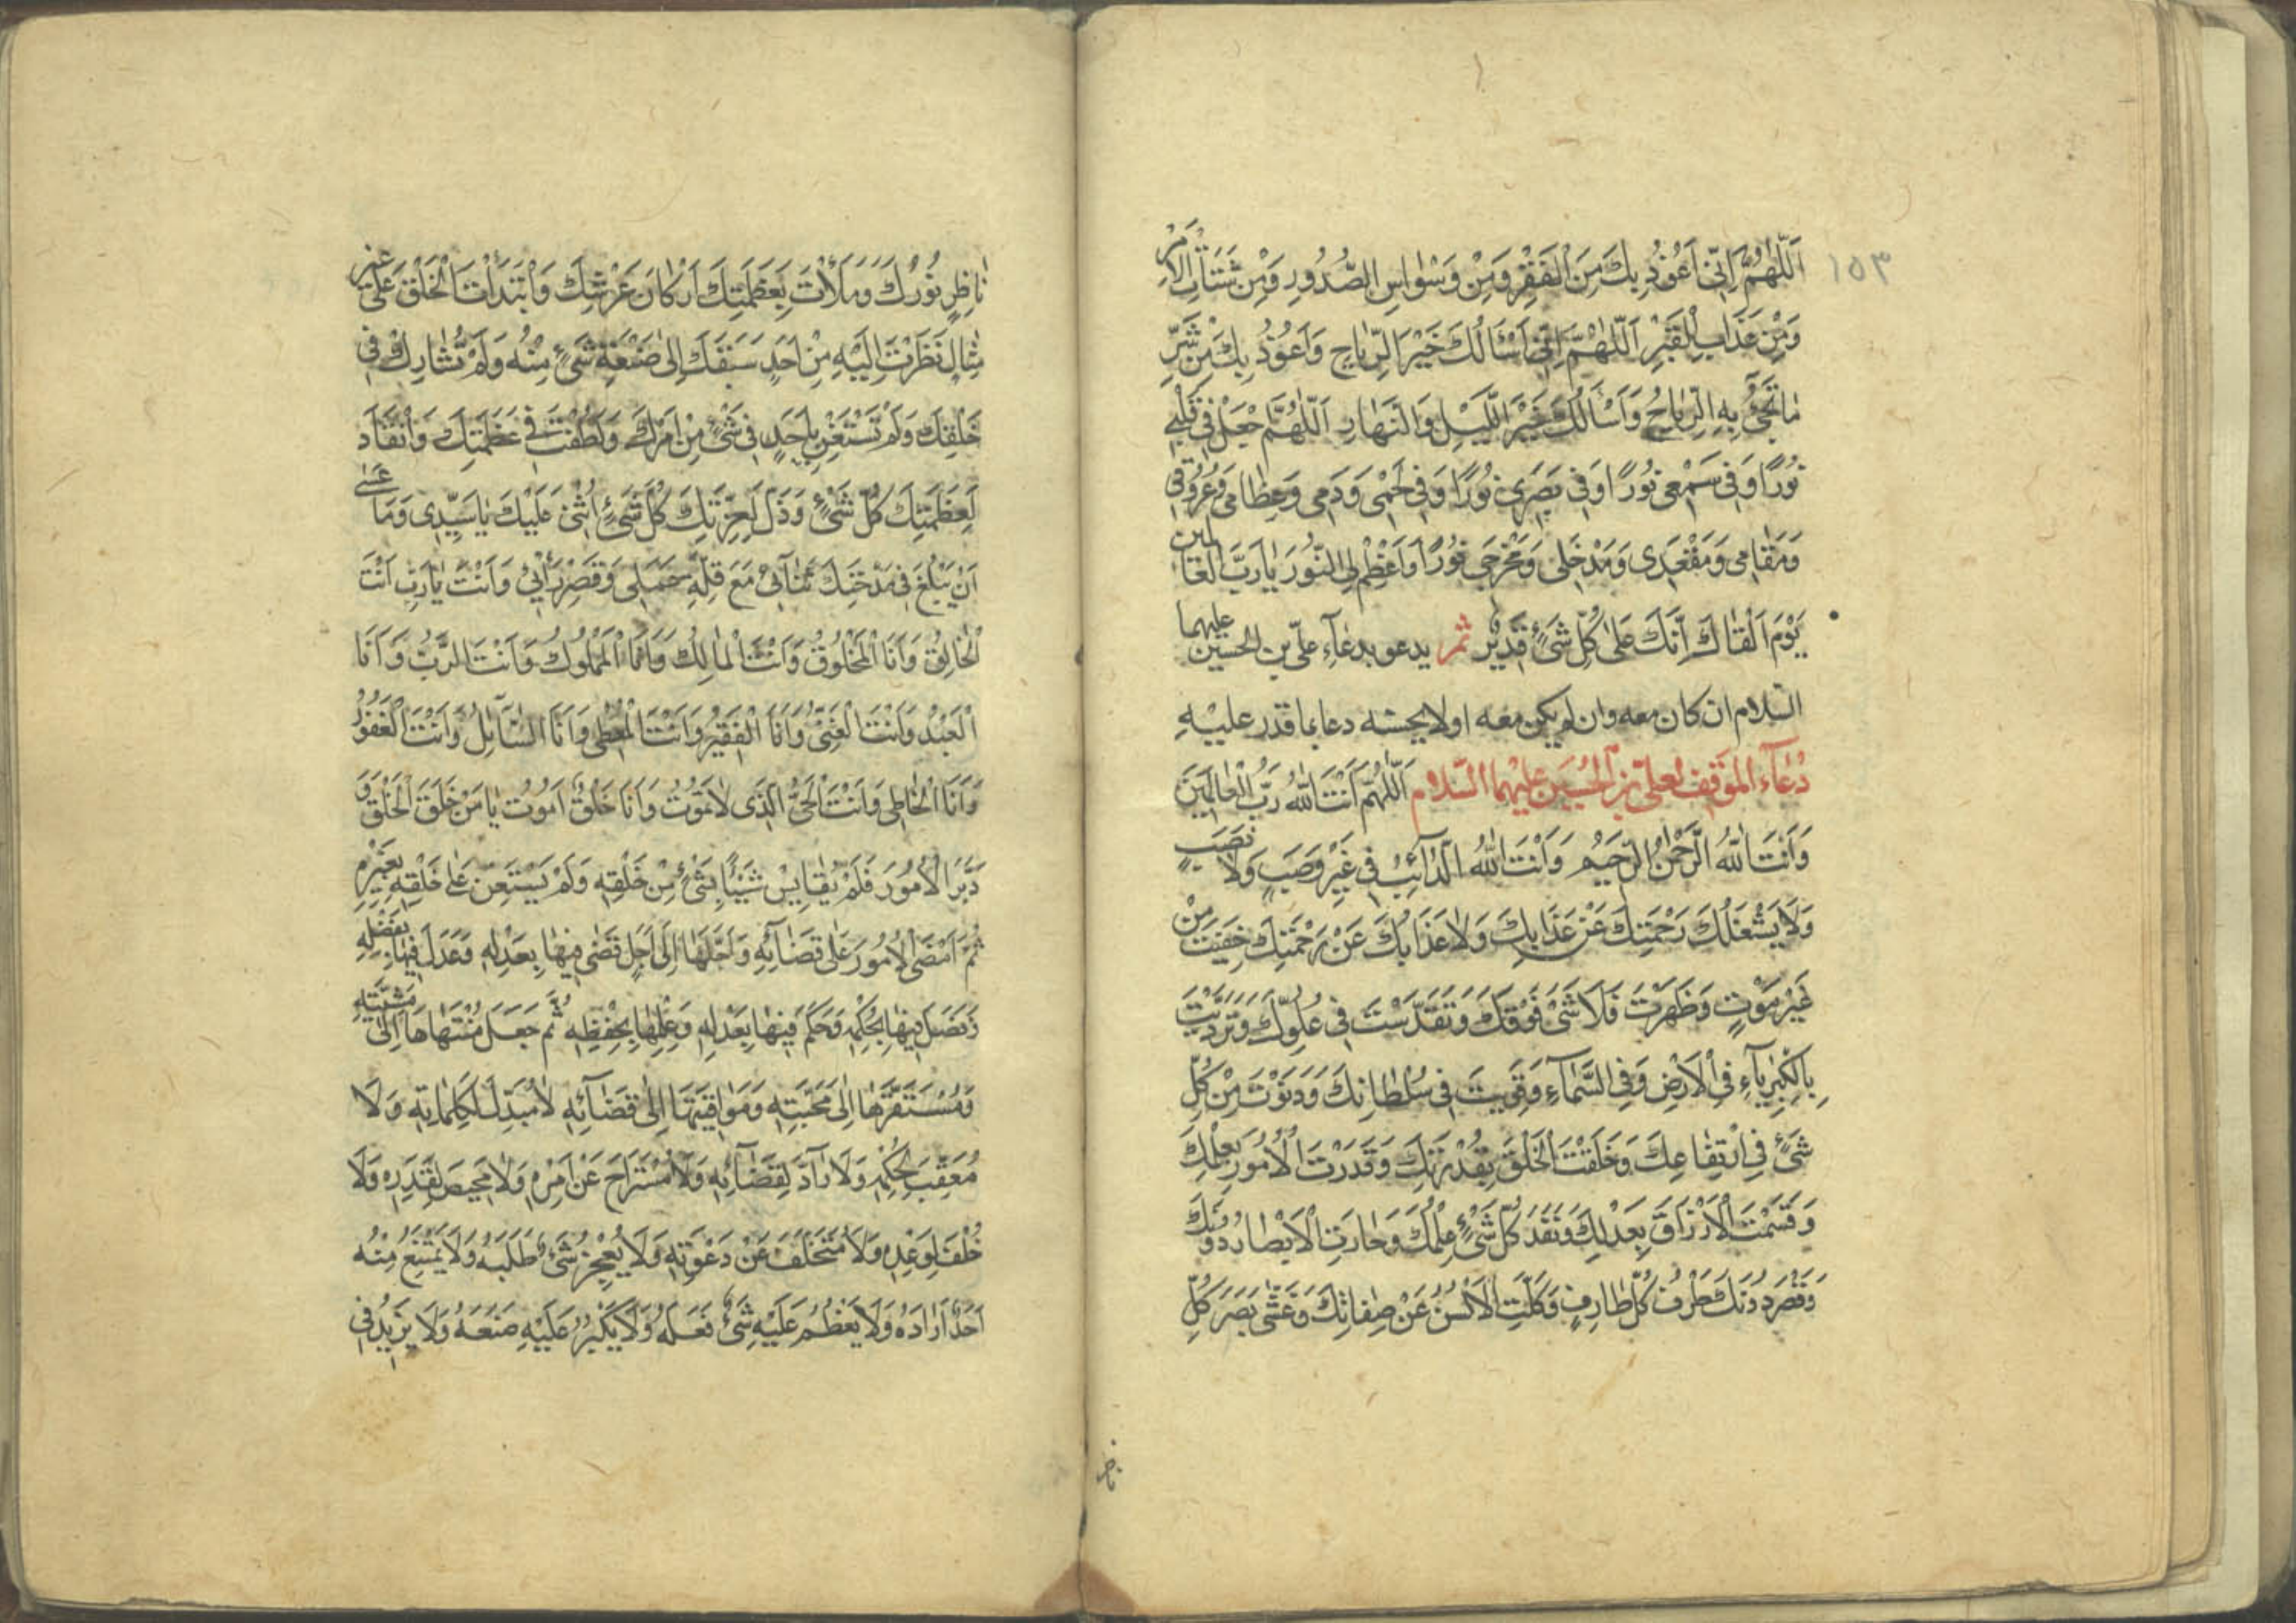 ١٥٣
اَللّٰهُمَّ اِنّى اَعُوذُ بِكَ مِنَ الْفَقْرِ وَمِنْ وَسْوٰاسِ الصُّدُورِ وَمِنْ شَتَاتِ الْاَمْرِ
وَمِنْ عَذَابِ الْقَبْرِ اَللّٰهُمَّ اِنّى اَسْأَلُكَ خَيْرَ الرِّيَاحِ وَاَعُوذُ بِكَ مِنْ شَرِّ
مٰا تَجِىُٔ بِهِ الرِّيَاحُ وَاَسْأَلُكَ خَيْرَ اللَّيْلِ وَالنَّهَارِ اَللّٰهُمَّ اجْعَلْ فِى قَلْبِى
نُورًا وَفِى سَمْعِى نُورًا وَفِى بَصَرِى نُورًا وَفِى لَحْمِى وَدَمِى وَعِظَامِى وَعُرُوقِى
وَمَقَامِى وَمَقْعَدِى وَمَدْخَلِى وَمَخْرَجِى نُورًا وَاَعْظِمْ لِى النُّورَ يَا رَبَّ الْعَالمين
يَوْمَ اَلْقٰاكَ اِنَّكَ عَلىٰ كُلِّ شَىْءٍ قَدِيْرٌ ثم يدعو بدعآء علىّ بن الحسين عليهما
السّلام ان كان معه وان لم يكن معه اولا يحسنه دعا بما قدر عليْهِ
دُعٰآءُ الْمَوْقِفِ لِعَلىّ بْنِ الْحُسَيْنِ عَلَيْهِمَا السَّلام اَللّٰهُمَّ اَنْتَ اللّٰهُ رَبُّ الْعَالَمِينَ
وَاَنْتَ اللّٰهُ الرَّحْمٰنُ الرَّحِيْمُ وَاَنْتَ اللّٰهُ الدّٰآئِبُ فِى غَيْرِ وَصَبٍ وَلَا نَصَبٍ
وَلَا يَشْغَلُكَ رَحْمَتُكَ عَنْ عَذَابِكَ وَلَا عَذَابُكَ عَنْ رَحْمَتِكَ خَفِيْتَ مِنْ
غَيْرِ مَوْتٍ وَظَهَرْتَ فَلَا شَىْءَ فَوْقَكَ وَتَقَدَّسْتَ فِى عُلُوِّكَ وَتَرَدَّيْتَ
بِالْكِبْرِيَآءِ فِى الْاَرْضِ وَفِى السَّمَآءِ وَقَوِيتَ فِى سُلْطَانِكَ وَدَنَوْتَ مِنْ كُلِّ
شَىْءٍ فِى ارْتِفَاعِكَ وَخَلَقْتَ الْخَلْقَ بِقُدْرَتِكَ وَقَدَّرْتَ الْاُمُورَ بِعِلْمِكَ
وَقَسَمْتَ الْاَرْزَاقَ بِعَدْلِكَ وَنَفَذَ كُلَّ شَىْءٍ عِلْمُكَ وَحَارَتِ الْاَبْصَارُ دُونَكَ
وَقَصُرَ دُونَكَ طَرْفُ كُلِّ طَارِفٍ وَكَلَّتِ الْاَلْسُنُ عَنْ صِفَاتِكَ وَغَشَّى بَصَرَ كُلِّ
نَاظِرٍ نُورُكَ وَمَلَأْتَ بِعَظَمَتِكَ اَرْكَانَ عَرْشِكَ وَابْتَدَأْتَ الْخَلْقَ عَلىٰ غير
مِثَالٍ نَظَرْتَ اِلَيْهِ مِنْ اَحَدٍ سَبَقَكَ اِلىٰ صَنْعَةِ شَىْءٍ مِنْهُ وَلَمْ تُشَارَكْ فِى
خَلْقِكَ وَلَمْ تَسْتَعِنْ بِاَحَدٍ فِى شَىْءٍ مِنْ اَمْرِكَ وَلَطُفْتَ فِى عَظَمَتِكَ وَانْقَادَ
لِعَظَمَتِكَ كُلُّ شَىْءٍ وَذَلَّ لِعِزَّتِكَ كُلُّ شَىْءٍ اُثْنِى عَلَيْكَ يَا سَيِّدِى وَمَا عَسٰى
اَنْ يَبْلُغَ فِى مِدْحَتِكَ ثَنَآئِى مَعَ قِلَّةِ عَمَلِى وَقِصَرِ رَأْيِى وَاَنْتَ يَا رَبِّ اَنْتَ
الْخَالِقُ وَاَنَا الْمَخْلُوقُ وَاَنْتَ الْمَالِكُ وَاَنَا الْمَمْلُوكُ وَاَنْتَ الرَّبُّ وَاَنَا
الْعَبْدُ وَاَنْتَ الْغَنِىُّ وَاَنَا الْفَقِيرُ وَاَنْتَ الْمُعْطِى وَاَنَا السَّآئِلُ وَاَنْتَ الْغَفُورُ
وَاَنَا الْخَاطِى وَاَنْتَ الْحَىُّ الَّذِى لَا تَمُوتُ وَاَنَا خَلْقٌ اَمُوتُ يَا مَنْ خَلَقَ الْخَلْقَ وَ
دَبَّرَ الْاُمُورَ فَلَمْ يُقَايِسْ شَيْئًا بِشَىْءٍ مِنْ خَلْقِهِ وَلَمْ يَسْتَعِنْ عَلىٰ خَلْقِهِ بِغَيْرِهِ
ثُمَّ اَمْضَى الْاُمُورَ عَلىٰ قَضَآئِهِ وَاَجَّلَهَا اِلىٰ اَجَلٍ قَضىٰ فِيهَا بِعَدْلِهِ وَعَدَلَ فِيهَا بِفَضْلِهِ
وَفَصَلَ فِيهَا بِحُكْمِهِ وَحَكَمَ فِيهَا بِعَدْلِهِ وَعَلِمَهَا بِحِفْظِهِ ثُمَّ جَعَلَ مُنْتَهَاهَا اِلىٰ مَشِيَّتِهِ
وَمُسْتَقَرَّهَا اِلىٰ مَحَبَّتِهِ وَمَوَاقِيتَهَا اِلىٰ قَضَآئِهِ لَا مُبَدِّلَ لِكَلِمَاتِهِ وَلَا
مُعَقِّبَ لِحُكْمِهِ وَلَا رَآدَّ لِقَضَآئِهِ وَلَا مُسْتَرَاحَ عَنْ اَمْرِهِ وَلَا مَحِيصَ لِقَدَرِهِ وَلَا
خُلْفَ لِوَعْدِهِ وَلَا مُتَخَلَّفَ عَنْ دَعْوَتِهِ وَلَا يُعْجِزُهُ شَىْءٌ طَلَبَهُ وَلَا يَمْتَنِعُ مِنْهُ
اَحَدٌ اَرَادَهُ وَلَا يَعْظُمُ عَلَيْهِ شَىْءٌ فَعَلَهُ وَلَا يَكْبُرُ عَلَيْهِ صَنَعَهُ وَلَا يَزِيدُ فِى